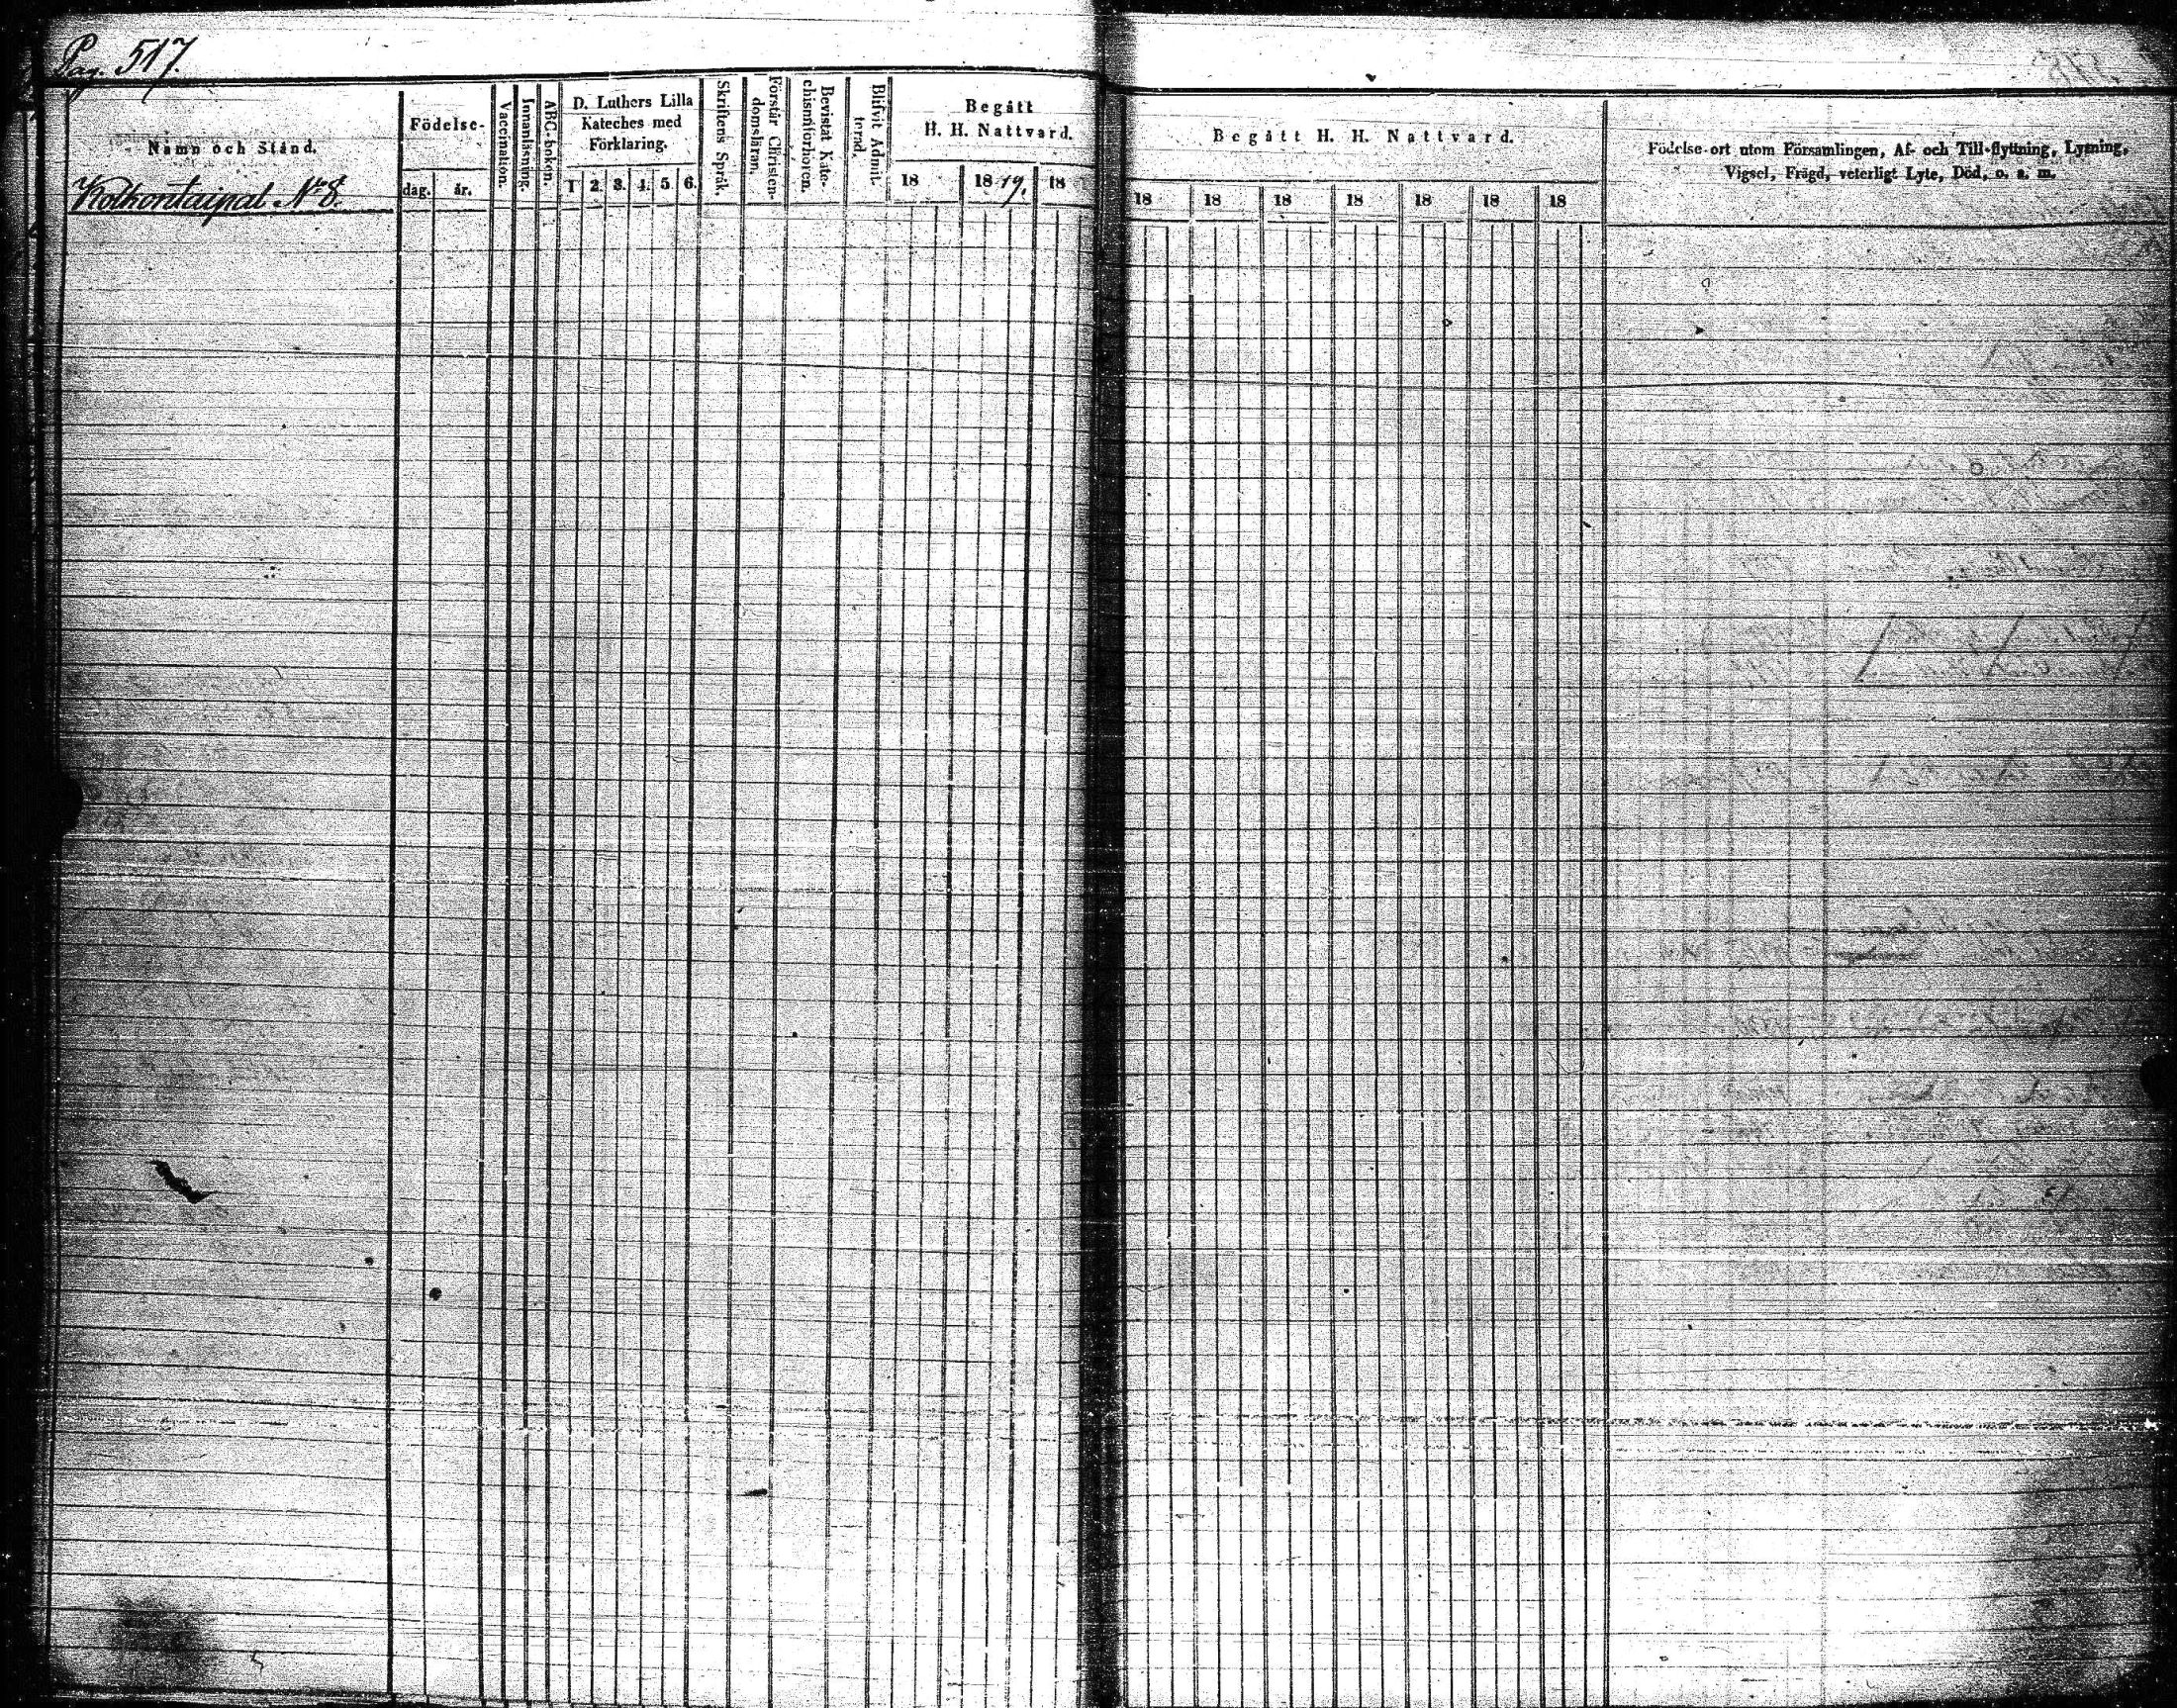 Pag. 517.
Namn och Stånd.
Kolkontaipal No 8.
Födelse-
dag. år.
Vaccination.
Innanläsning.
ABC-boken.
D. Luthers Lilla
Kateches med
Förklaring.
1 2. 3. 4. 5. 6.
Skriftens Språk.
Förstår Christen-
domsläran.
Bevistat Kate-
chismiförhören.
Blifvit Admit-
terad.
Begått
H. H. Nattvard.
18 1819. 18
Begått H. H. Nattvard.
18 18 18 18 18 18 18
Födelse-ort utom Församlingen, Af- och Till-flyttning, Lysning,
Vigsel, Frägd, veterligt Lyte, Död, o. s. m.